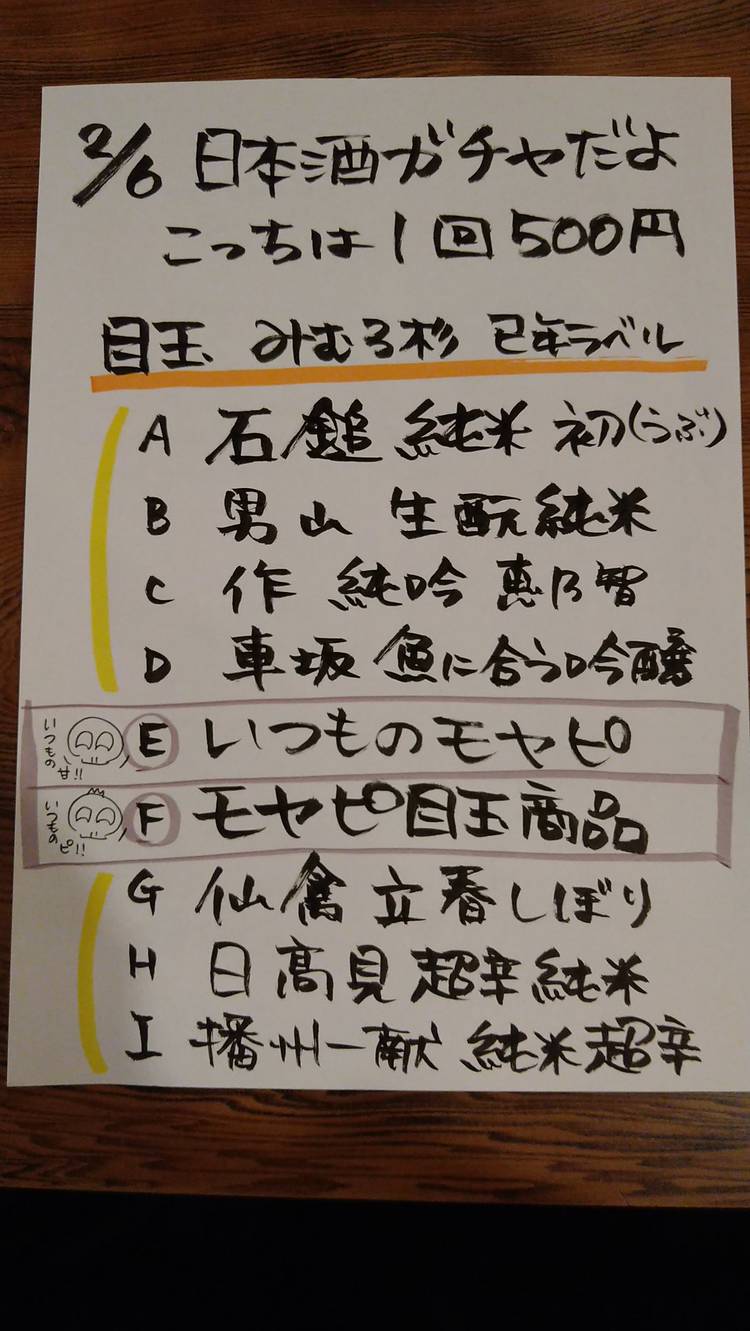 2/6 日本酒ガチャだよ
こっちは1回500円
目玉 みむろ杉 巳年ラベル
A 石鎚 純米 初(うぶ)
B 男山 生酛純米
C 作 純吟 恵乃智
D 車坂 魚に合う吟醸
いつもの甘!! E いつものモヤピ
いつものピ!! F モヤピ目玉商品
G 仙禽 立春しぼり
H 日高見 超辛純米
I 播州一献 純米超辛